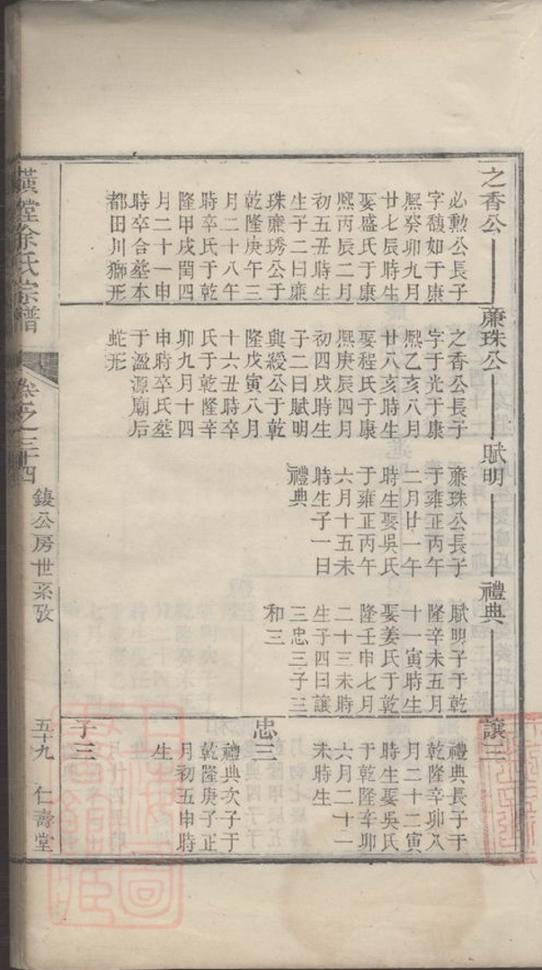 之香公
必勲公長子
字馥如于康
熙癸卯九月
廿七辰時生
娶盛氏于康
熙丙辰二月
初五丑時生
生子二曰廉
珠廉琇公于
乾隆庚午三
月二十八午
時卒氏于乾
隆甲戌閏四
月二十一申
時卒合墓本
都田川獅形
廉珠公
之香公長子
字于光于康
熙乙亥八月
廿八亥時生
娶程氏于康
熙庚辰四月
初四戌時生
子二曰賦明
與綬公于乾
隆戊寅八月
十六丑時卒
氏于乾隆辛
卯九月十四
申時卒氏墓
于盈源廟后
蛇形
賦明
廉珠公長子
于雍正丙午
二月廿一午
時生娶吳氏
于雍正丙午
六月十五未
時生子一曰
禮典
禮典
賦明子于乾
隆辛未五月
十一寅時生
娶姜氏于乾
隆壬申七月
二十三未時
生子四曰讓
三忠三子三
和三
讓三
禮典長子于
乾隆辛卯八
月二十二寅
時生娶吳氏
于乾隆辛卯
六月二十一
未時生
忠三
禮典次子于
乾隆庚子正
月初五申時
生
子三
徐氏宗譜
卷之三十四
鍰公房世系攷
五十九
仁壽堂